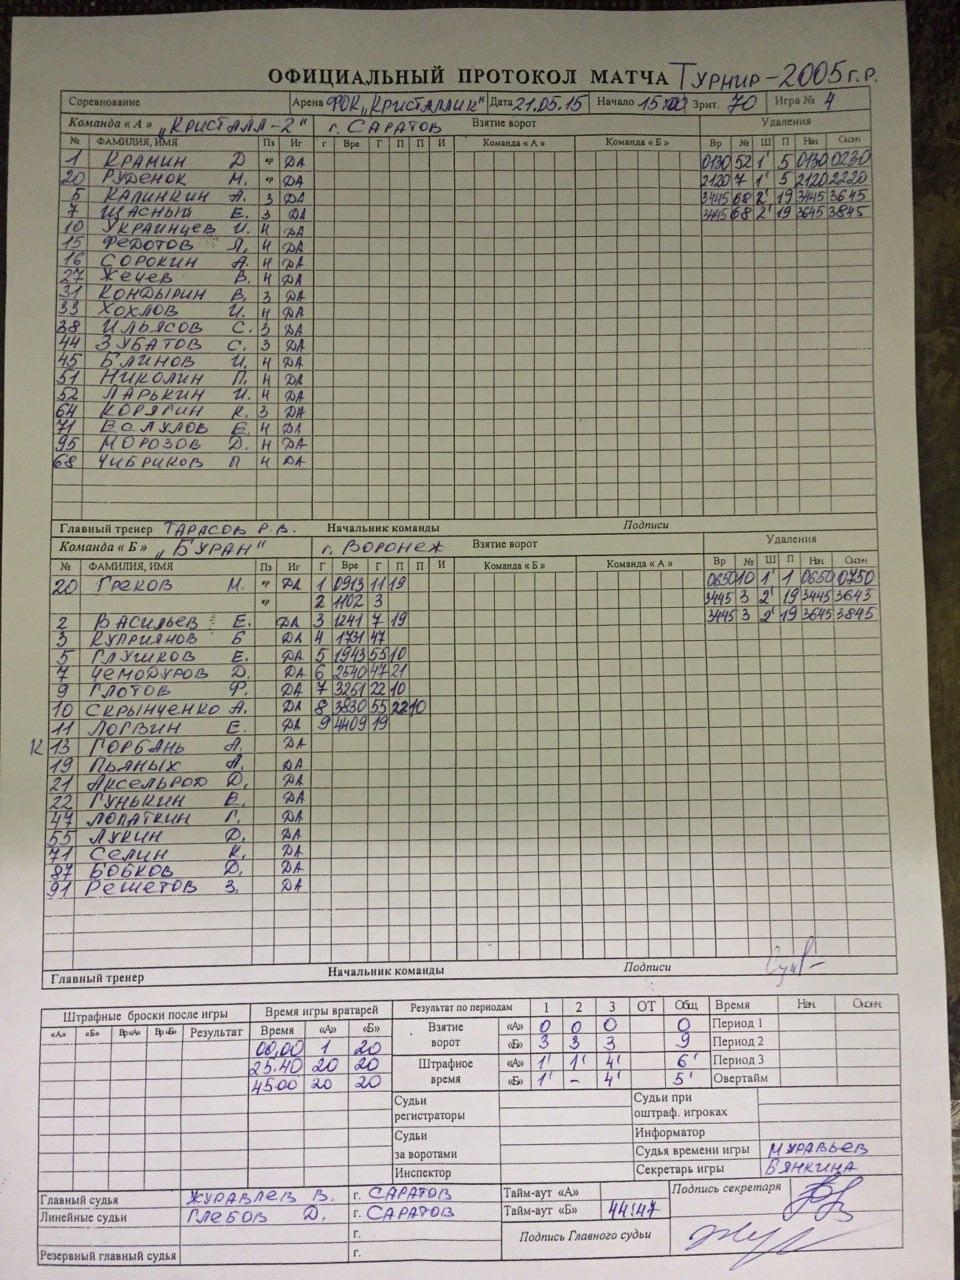 ОФИЦИАЛЬНЫЙ ПРОТОКОЛ МАТЧА ТУРНИР-2005 г.р.
Соревнование Арена ФОК „КРИСТАЛЛИК" Дата 21.05.15 Начало 15:00 Зрит. 70 Игра № 4
Команда « А » „КРИСТАЛЛ-2" г. САРАТОВ Взятие ворот Удаления
№ ФАМИЛИЯ, ИМЯ Пз Иг Г Вре Г П П И Команда « А » Команда « Б » Вр № Ш П Нач Оконч
1 КРАМИН Д вр ДА 0130 52 1' 5 0130 0230
20 РУДЕНОК М. вр ДА 2120 7 1' 5 2120 2220
5 КАЛИНКИН А. З ДА 3445 68 2' 19 3445 3645
7 ЩАСНЫЙ Е. З ДА 3445 68 2' 19 3645 3845
10 УКРАИНЦЕВ И. Н ДА
15 ФЕДОТОВ Л. Н ДА
16 СОРОКИН А. Н ДА
27 ЖЕЧЕВ В. Н ДА
31 КОНДЫРИН В. З ДА
33 ХОХЛОВ И. Н ДА
38 ИЛЬЯСОВ С. З ДА
44 ЗУБАТОВ С. З ДА
45 БЛИНОВ И. Н ДА
51 НИКОЛИН П. Н ДА
52 ЛАРЬКИН И. Н ДА
64 КОРЯГИН К. З ДА
71 ВАУЛОВ Е. Н ДА
95 МОРОЗОВ Д. Н ДА
68 ЧИБРИКОВ П Н ДА
Главный тренер ТАРАСОВ Р.В. Начальник команды Подписи
Команда « Б » „БУРАН" г. ВОРОНЕЖ Взятие ворот Удаления
№ ФАМИЛИЯ, ИМЯ Пз Иг Г Вре Г П П И Команда « Б » Команда « А » Вр № Ш П Нач Оконч
20 ГРЕКОВ М. вр ДА 1 0913 11 19 0650 10 1' 1 0650 0750
вр 2 1102 3 3445 3 2' 19 3445 3645
2 ВАСИЛЬЕВ Е. ДА 3 1241 7 19 3445 3 2' 19 3645 3845
3 КУПРИЯНОВ Б ДА 4 1731 47
5 ГЛУШКОВ Е. ДА 5 1943 55 10
7 ЧЕМОДУРОВ Д. ДА 6 2540 47 21
9 ГЛОТОВ Ф. ДА 7 3251 22 10
10 СКРЫНЧЕНКО А. ДА 8 3830 55 22 10
11 ЛОГВИН Е. ДА 9 4409 19
К 13 ГОРБАНЬ А. ДА
19 ПЬЯНЫХ А. ДА
21 АКСЕЛЬРОД Д. ДА
22 ГУНЬКИН В. ДА
47 ЛОПАТКИН Г. ДА
55 ЛУКИН Д. ДА
71 СЕЛИН К. ДА
87 БОБКОВ Д. ДА
91 РЕШЕТОВ З. ДА
Главный тренер Начальник команды Подписи
Штрафные броски после игры Время игры вратарей Результат по периодам 1 2 3 ОТ Общ Время Нач Оконч
«А» «Б» Вр«А» Вр«Б» Результат Время «А» «Б» Взятие ворот «А» 0 0 0 0 Период 1
00.00 1 20 «Б» 3 3 3 9 Период 2
25.40 20 20 Штрафное время «А» 1' 1' 4' 6' Период 3
45.00 20 20 «Б» 1' - 4' 5' Овертайм
Судьи регистраторы Судьи при оштраф. игроках
Информатор
Судьи за воротами Судья времени игры МУРАВЬЕВ
Инспектор Секретарь игры БЯНКИНА
Главный судья ЖУРАВЛЕВ В. г. САРАТОВ Тайм-аут «А» Подпись секретаря
Линейные судьи ГЛЕБОВ Д. г. САРАТОВ Тайм-аут «Б» 44:47
г. Подпись Главного судьи
Резервный главный судья г.